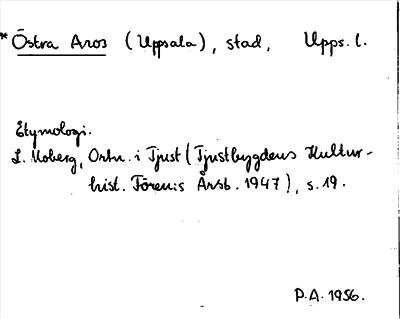 * Östra Aros (Uppsala), stad, Upps. l.
Etymologi.
L. Moberg, Ortn. i Tjust (Tjustbygdens Kultur-
hist. Fören:s Årsb. 1947), s. 19.
P.A. 1956.